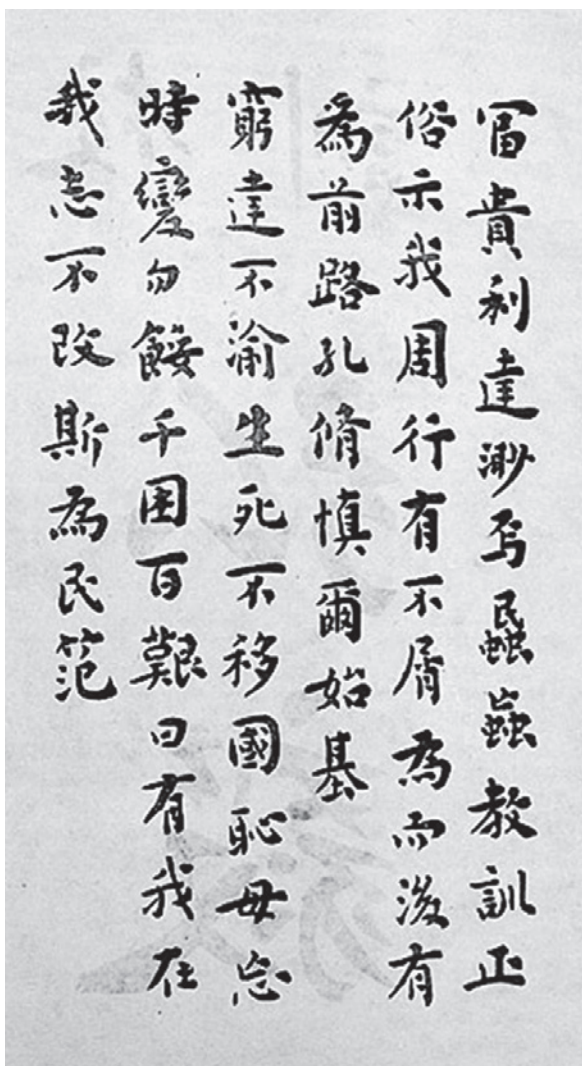 冨貴利達渺焉蟁蝱教訓正
俗示我周行有不屑為而後有
為前路孔脩慎爾始基
窮達不渝生死不移國恥毋忘
時變勿餒千困百艱曰有我在
我志不改斯為民笵